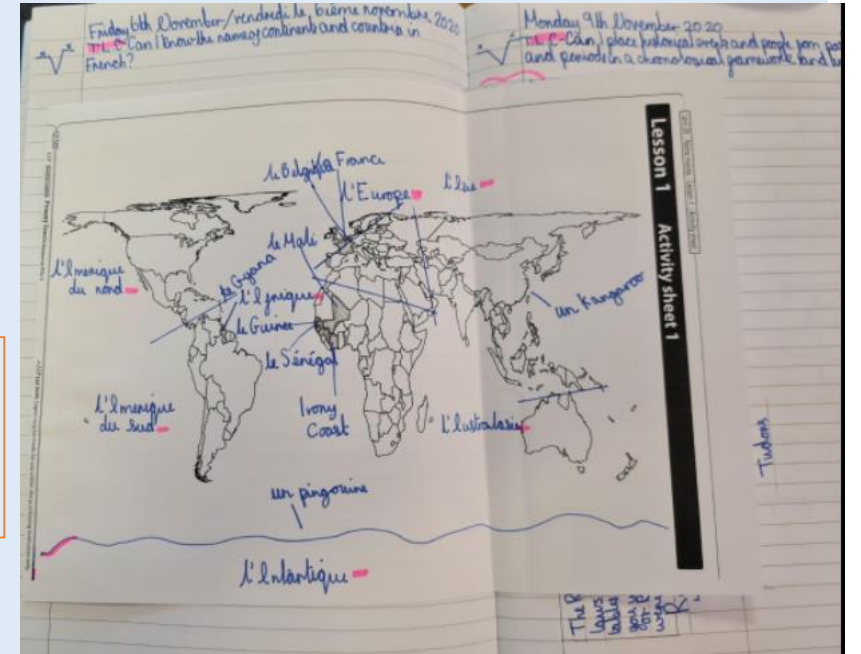 Friday 6th November/vendredi le, 6ième novembre 2020
T.L.C-Can I know the names of continents and countries in
French?
Monday 9th November 2020
T.L.C-Can I place historical events and people from pas
and periods in a chronological framework (and b
Lesson 1 Activity sheet 1
le Belgi
la France
l'Europe
l'Asie
le Mali
l'Amerique
du nord
le Gyana
l'Afrique
un Kangaroo
le Guinee
le Sénégal
Ivory
Coast
l'Amerique
du sud
l'Australasie
Tudors
un pingouine
l'Antartique
The R